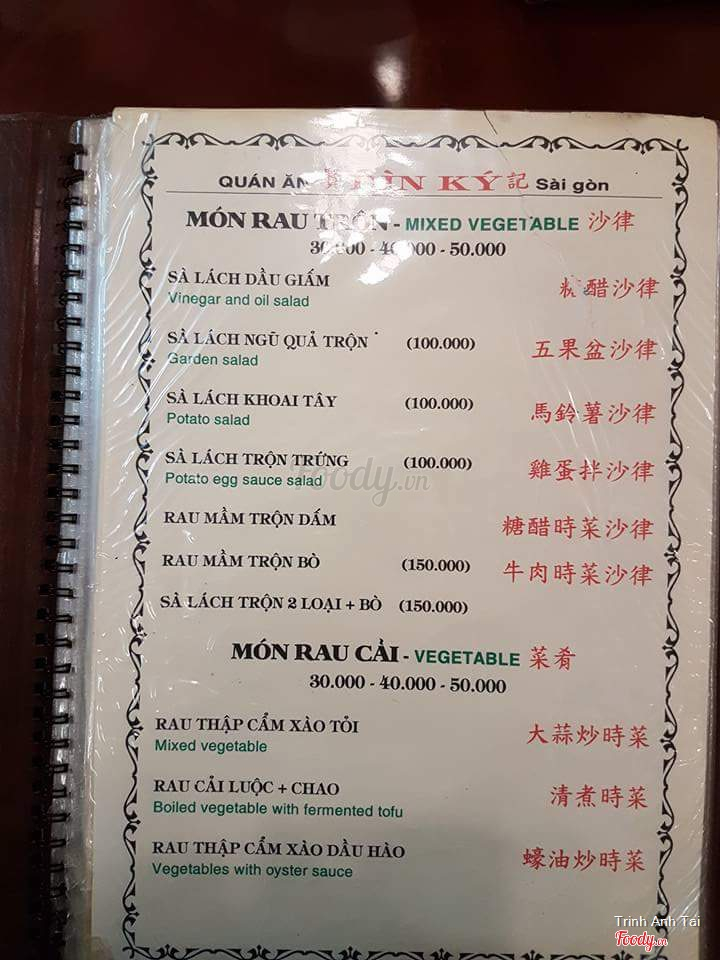 QUÁN ĂN KÝ 記 Sài gòn
MÓN RAU TRỘN - MIXED VEGETABLE 沙律
30.000 - 40.000 - 50.000
SÀ LÁCH DẦU GIẤM 糖醋沙律
Vinegar and oil salad
SÀ LÁCH NGŨ QUẢ TRỘN (100.000) 五果盆沙律
Garden salad
SÀ LÁCH KHOAI TÂY (100.000) 馬鈴薯沙律
Potato salad
SÀ LÁCH TRỘN TRỨNG (100.000) 雞蛋拌沙律
Potato egg sauce salad
Foody.vn
RAU MẦM TRỘN DẤM 糖醋時菜沙律
RAU MẦM TRỘN BÒ (150.000) 牛肉時菜沙律
SÀ LÁCH TRỘN 2 LOẠI + BÒ (150.000)
MÓN RAU CẢI - VEGETABLE 菜肴
30.000 - 40.000 - 50.000
RAU THẬP CẨM XÀO TỎI 大蒜炒時菜
Mixed vegetable
RAU CẢI LUỘC + CHAO 清煮時菜
Boiled vegetable with fermented tofu
RAU THẬP CẨM XÀO DẦU HÀO 蠔油炒時菜
Vegetables with oyster sauce
Trinh Anh Tai
Foody.vn